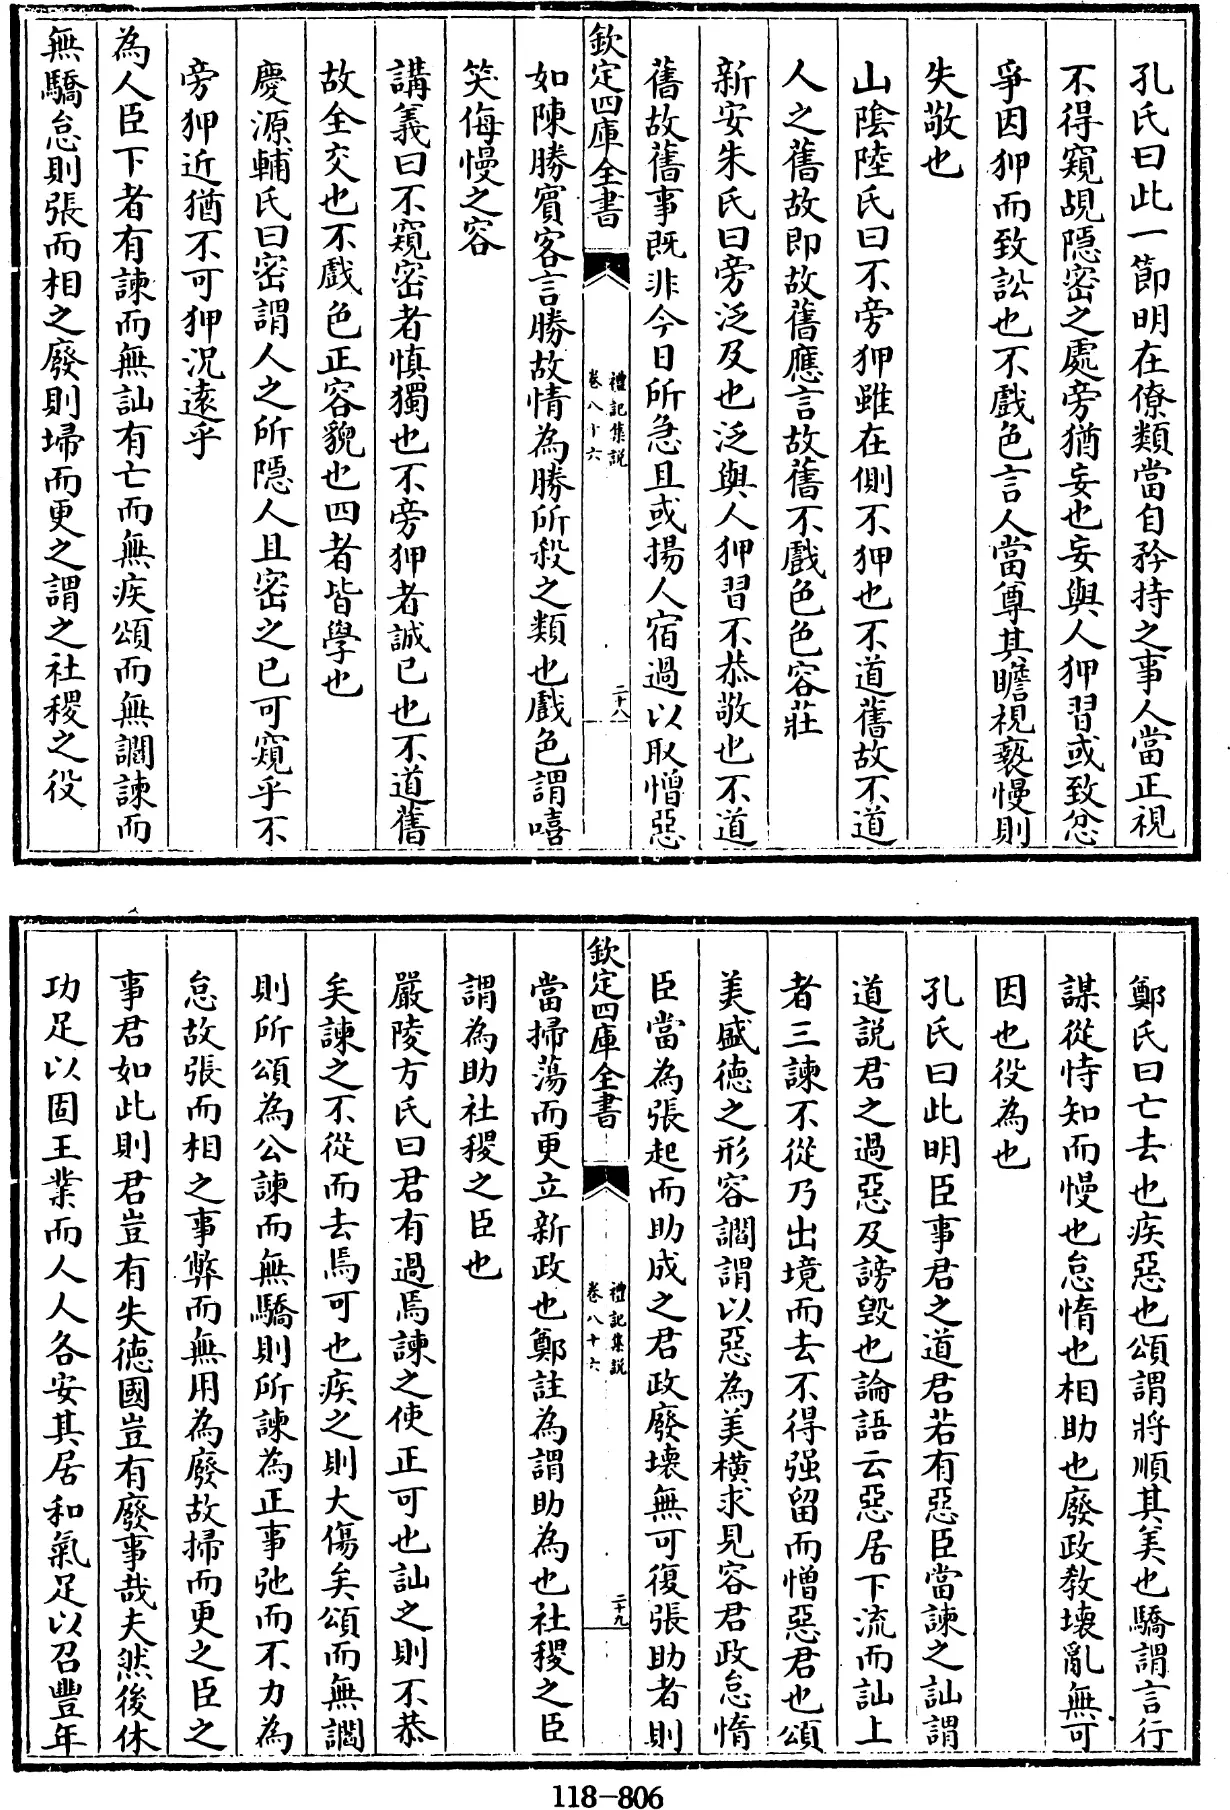 孔氏曰此一節明在僚類當自矜持之事人當正視
不得窺覘隱密之處旁猶妄也妄與人狎習或致忿
爭因狎而致訟也不戲色言人當尊其瞻視褻慢則
失敬也
山陰陸氏曰不旁狎雖在側不狎也不道舊故不道
人之舊故即故舊應言故舊不戲色色容莊
新安朱氏曰旁泛及也泛與人狎習不恭敬也不道
舊故舊事既非今日所急且或揚人宿過以取憎惡
欽定四庫全書
禮記集說
卷八十六
二十八
如陳勝賓客言勝故情為勝所殺之類也戲色謂嘻
笑侮慢之容
講義曰不窺密者慎獨也不旁狎者誠已也不道舊
故全交也不戲色正容貌也四者皆學也
慶源輔氏曰密謂人之所隱人且密之已可窺乎不
旁狎近猶不可狎況遠乎
為人臣下者有諫而無訕有亡而無疾頌而無讇諫而
無驕怠則張而相之廢則埽而更之謂之社稷之役
鄭氏曰亡去也疾惡也頌謂將順其美也驕謂言行
謀從恃知而慢也怠惰也相助也廢政教壞亂無可
因也役為也
孔氏曰此明臣事君之道君若有惡臣當諫之訕謂
道說君之過惡及謗毀也論語云惡居下流而訕上
者三諫不從乃出境而去不得强留而憎惡君也頌
美盛德之形容讇謂以惡為美橫求見容君政怠惰
臣當為張起而助成之君政廢壞無可復張助者則
欽定四庫全書
禮記集說
卷八十六
二十九
當掃蕩而更立新政也鄭註為謂助為也社稷之臣
謂為助社稷之臣也
嚴陵方氏曰君有過焉諫之使正可也訕之則不恭
矣諫之不從而去焉可也疾之則大傷矣頌而無讇
則所頌為公諫而無驕則所諫為正事弛而不力為
怠故張而相之事弊而無用為廢故掃而更之臣之
事君如此則君豈有失德國豈有廢事哉夫然後休
功足以固王業而人人各安其居和氣足以召豐年
118-806